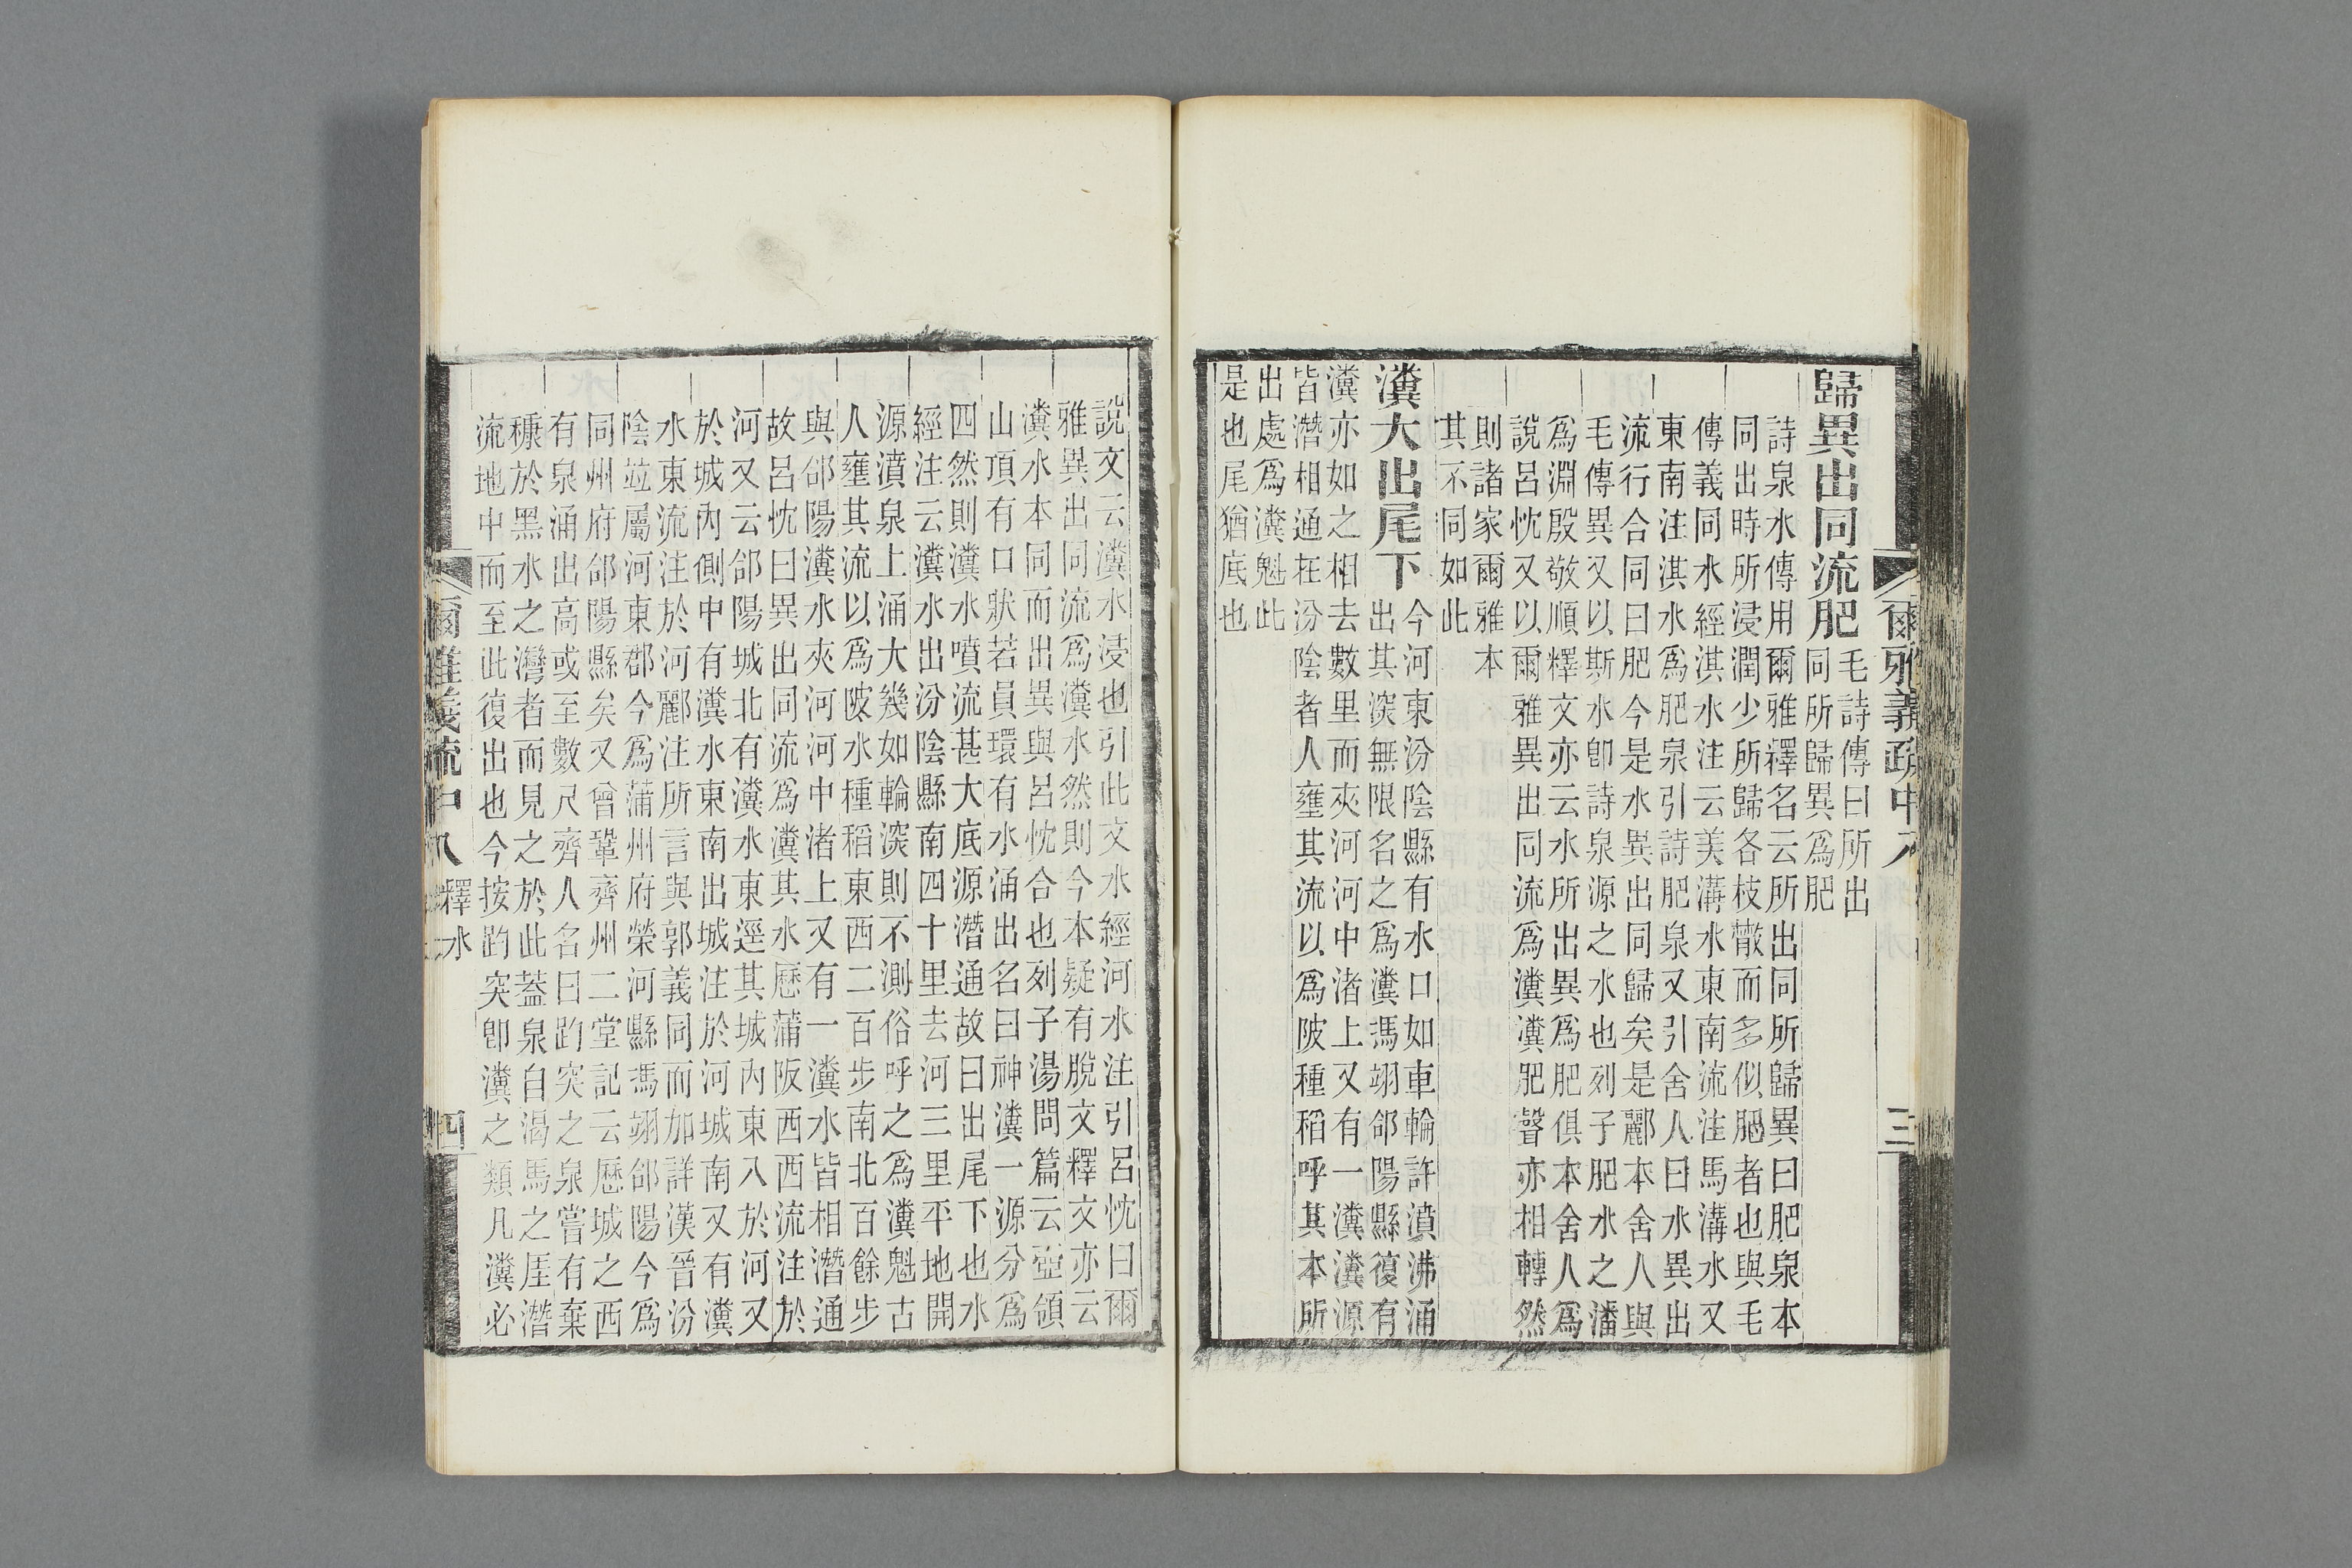 爾雅義疏中八
三
歸異出同流肥
毛詩傳曰所出
同所歸異爲肥
詩泉水傳用爾雅釋名云所出同所歸異曰肥泉本
同出時所浸潤少所歸各枝㪚而多似肥者也與毛
傳義同水經淇水注云美溝水東南流注馬溝水又
東南注淇水爲肥泉引詩肥泉又引舍人曰水異出
流行合同曰肥今是水異出同歸矣是酈本舍人與
毛傳異又以斯水卽詩泉源之水也列子肥水之潘
爲淵殷敬順釋文亦云水所出異爲肥俱本舍人爲
說呂忱又以爾雅異出同流爲瀵瀵肥聲亦相轉然
則諸家爾雅本
其不同如此
瀵大出尾下
今河東汾陰縣有水口如車輪許濆沸涌
出其深無限名之爲瀵馮翊郃陽縣復有
瀵亦如之相去數里而夾河河中渚上又有一瀵瀵源
皆潛相通在汾陰者人壅其流以爲陂種稻呼其本所
出處爲瀵魁此
是也尾猶底也
說文云瀵水浸也引此文水經河水注引呂忱曰爾
雅異出同流爲瀵水然則今本疑有脫文釋文亦云
瀵水本同而出異與呂忱合也列子湯問篇云壺領
山頂有口狀若員環有水涌出名曰神瀵一源分爲
四然則瀵水噴流甚大底源潛通故曰出尾下也水
經注云瀵水出汾陰縣南四十里去河三里平地開
源濆泉上涌大幾如輪深則不測俗呼之爲瀵魁古
人壅其流以爲陂水種稻東西二百步南北百餘步
與郃陽瀵水夾河河中渚上又有一瀵水皆相潛通
故呂忱曰異出同流爲瀵其水歷蒲阪西西流注於
河又云郃陽城北有瀵水東逕其城內東入於河又
於城內側中有瀵水東南出城注於河城南又有瀵
水東流注於河酈注所言與郭義同而加詳漢晉汾
陰竝屬河東郡今爲蒲州府榮河縣馮翊郃陽今爲
同州府郃陽縣矣又曾鞏齊州二堂記云歷城之西
有泉涌出高或至數尺齊人名曰趵突之泉嘗有棄
穅於黑水之灣者而見之於此蓋泉自渴馬之厓潛
流地中而至此復出也今按趵突卽瀵之類凡瀵必
爾雅義疏中八
釋水
四